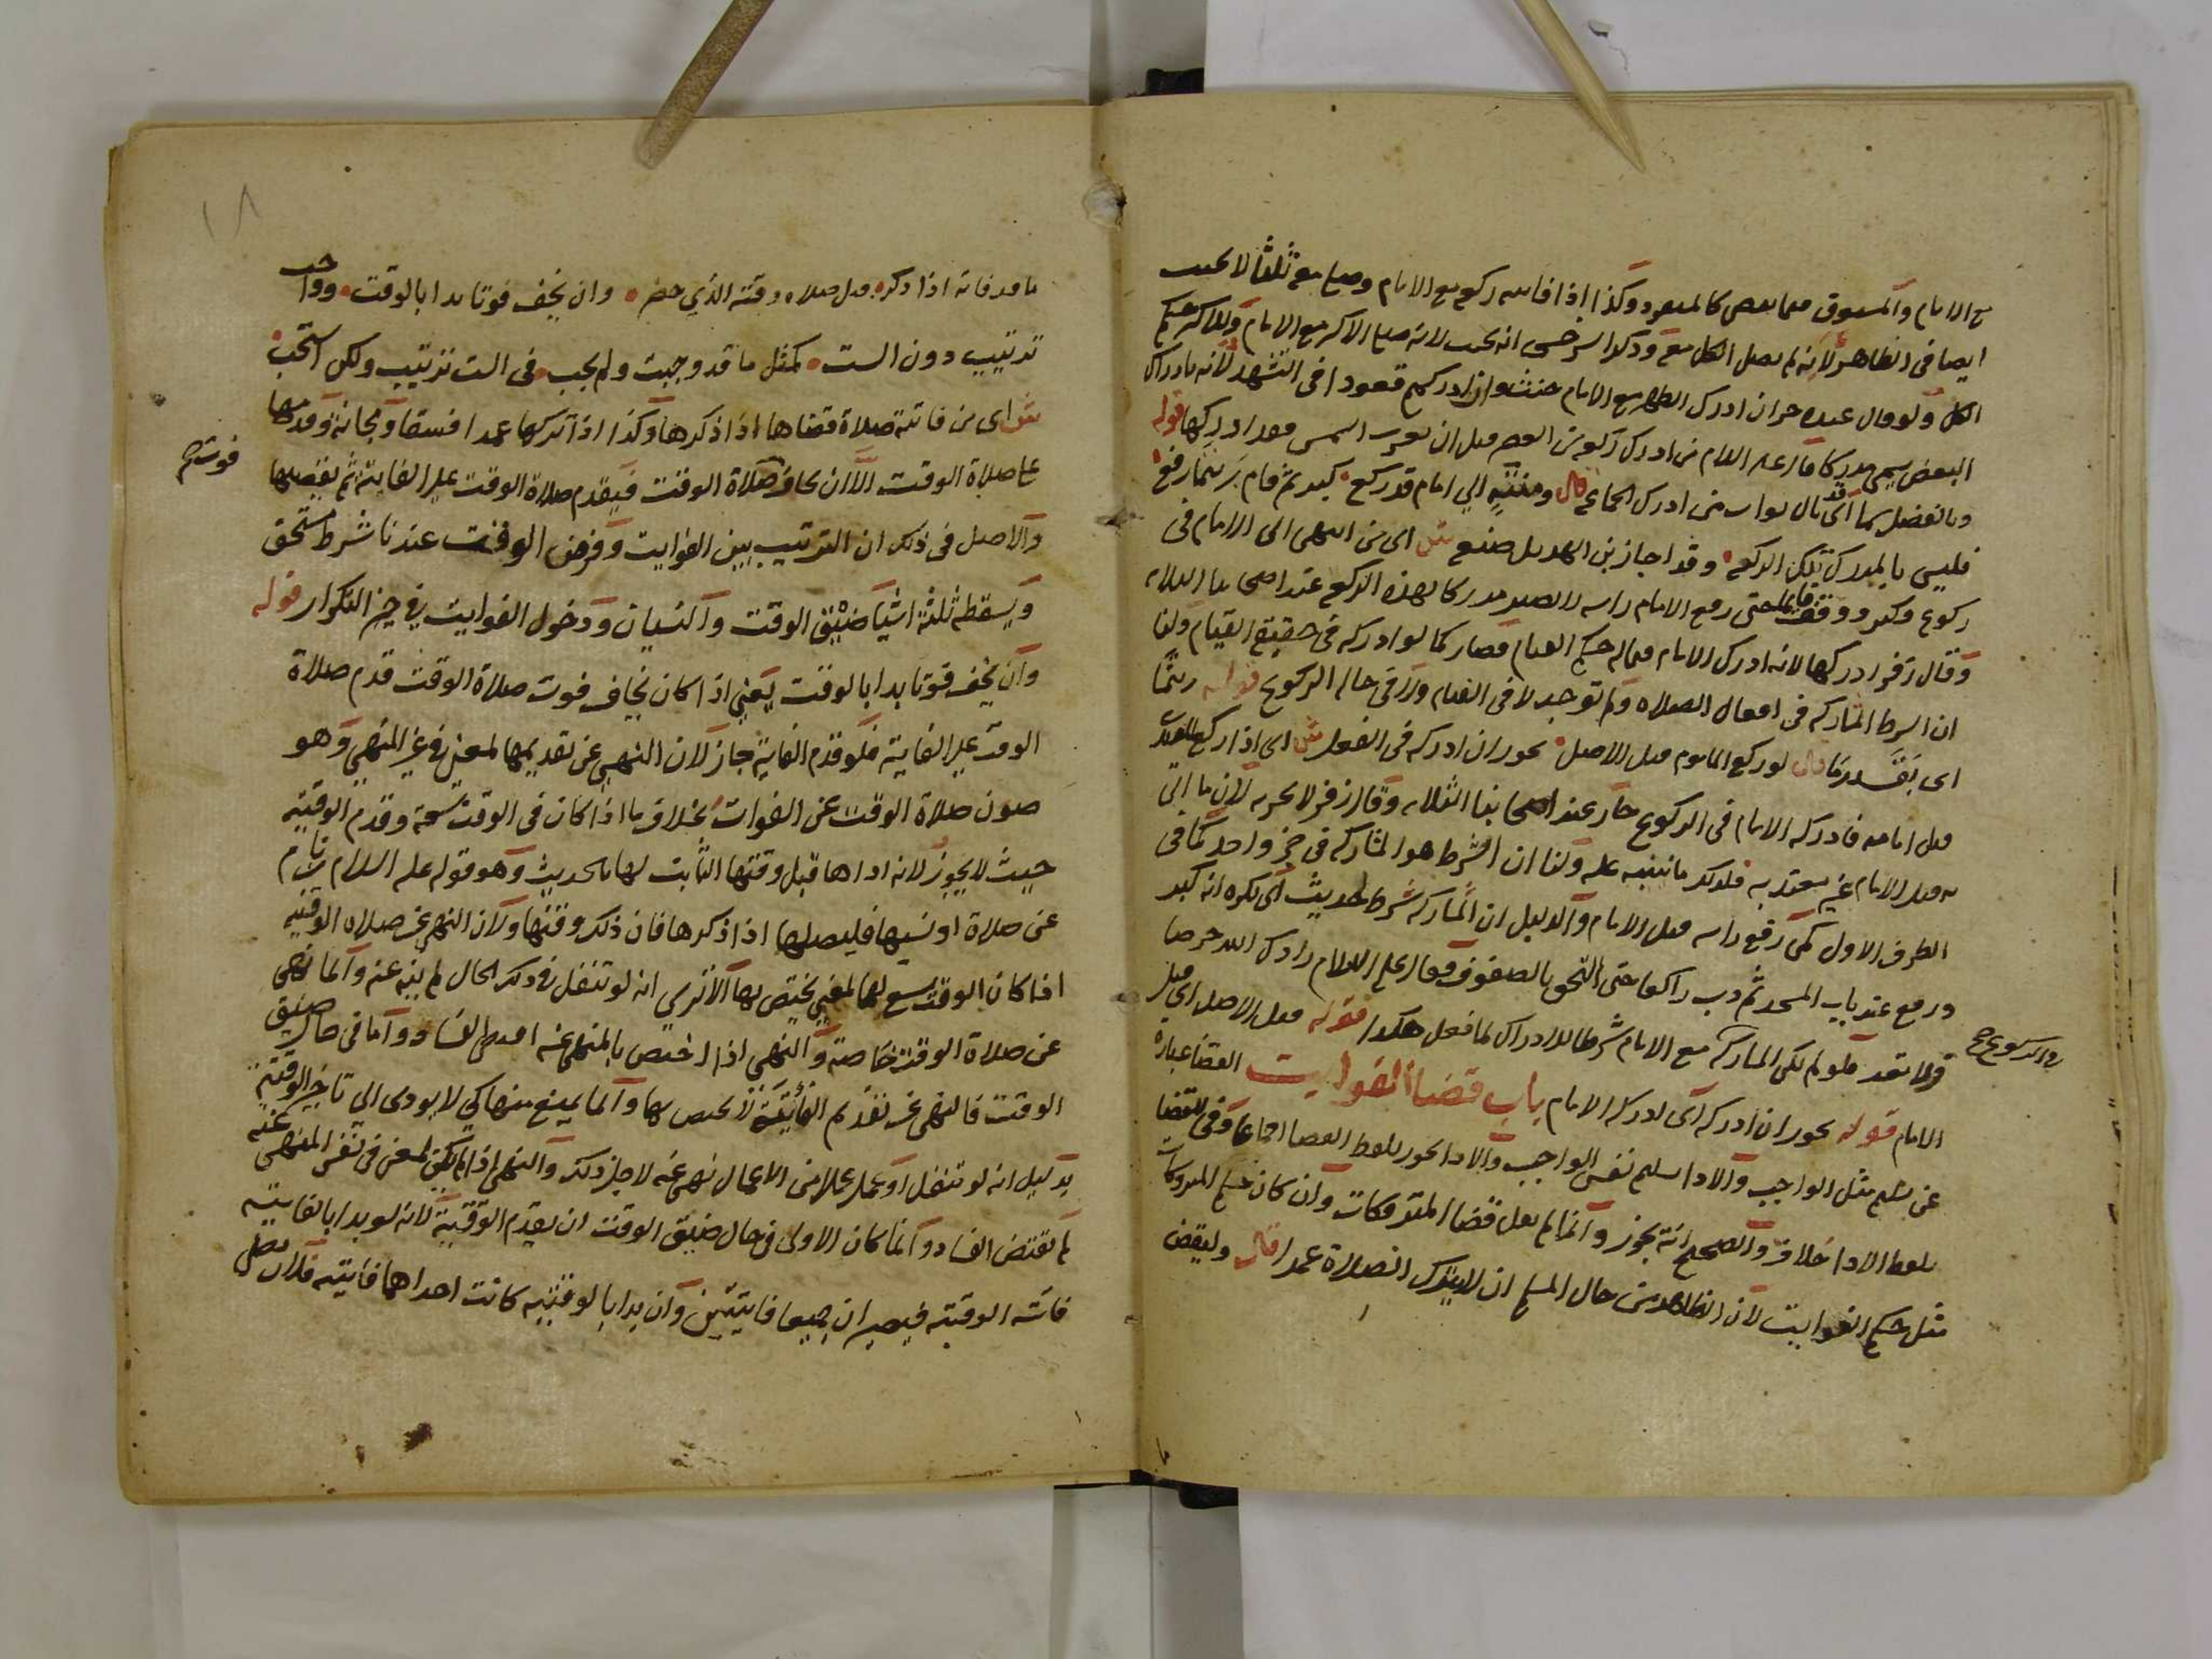 مع الامام والمسبوق فيما يقضي كالمنفرد وكذا اذا فاتته ركعة مع الامام وصلى معه ثلثا لا يحنث
ايضا في الظاهر لانه لم يصل الكل معه وذكر السرخسي انه يحنث لانه صلى الاكثر مع الامام وللاكثر حكم
الكل ولو قال عبده حر ان ادرك الظهر مع الامام حنث وان ادركهم قعودا في التشهد لانه بادراك
البعض يسمى مدركا قال عليه السلام من ادرك ركعة من العصر قبل ان تغرب الشمس فقد ادركها قوله
وبالفضل سما اي نال ثواب من ادرك الجماعة قال ومنته الي امام قد ركع كبر ثم قام ريثما رفع
فليس بالمدرك تلك الركعه وقد اجاز بن الهديل صنعه ش اي من انتهى الى الامام في
ركوع وكبر ووقف قايما حتى رفع الامام راسه لا يصير مدركا لهذه الركعة عند اصحابنا الثلاثه
وقال زفر ادركها لانه ادرك الامام فيما له حكم القيام فصار كما لو ادركه في حقيقة القيام ولنا
ان الشرط المشاركه في افعال الصلاه ولم توجد لا في القيام ولا في حاله الركوع قوله ريثما
اي بقدر ما قال لو ركع الماموم قبل الاصل يجوز ان ادركه في الفعل ش اي اذا ركع المقتدي
قبل امامه فادركه الامام في الركوع جاز عند اصحابنا الثلاثه وقال زفر لا يجزيه لان ما اتى
به قبل الامام غير معتد به فكذلك ما يبنيه عليه ولنا ان الشرط هو المشاركه في جزء واحد كما في
الطرف الاول كمن رفع راسه قبل الامام والدليل ان المشاركه شرط لحديث ابي بكره انه كبر
وركع عند باب المسجد ثم دب راكعا حتى التحق بالصفوف فقال عليه السلام زادك الله حرصا
ولا تعد فلو لم تكن المشاركه مع الامام شرطا للادراك لما فعل هكذا قوله قبل الاصل اي قبل
في الركوع صح
الامام قوله يجوز ان ادركه اي ادركه الامام باب قضاء الفوايت القضا عباره
عن تسليم مثل الواجب والادا تسليم نفس الواجب والادا يجوز بلفظ القضا اجماعا وفي القضا
بلفظ الادا خلاف والصحيح انه يجوز وانما لم يقل قضا المتروكات وان كان حكم المتروكات
مثل حكم الفوايت لان الظاهر من حال المسلم ان لا يترك الصلاة عمدا قال وليقض
١٨
ما قد فاته اذا ذكره قبل صلاه وقته الذي حضر وان يخف فوتا بدا بالوقت وواجب
ترتيب دون الست كمثل ما قد وجبت ولم يجب في الست ترتيب ولكن استحب
ش اي من فاتته صلاة قضاها اذا ذكرها وكذا اذا تركها عمدا فسقا ومجانة وقدمها
على صلاة الوقت الا ان يخاف صلاة الوقت فيقدم صلاة الوقت على الفايتة ثم يقضيها
فوت صح
والاصل في ذلك ان الترتيب بين الفوايت وفرض الوقت عندنا شرط مستحق
ويسقطه ثلثة اشيا ضيق الوقت والنسيان ودخول الفوايت في حيز التكرار قوله
وان يخف فوتا بدا بالوقت يعني اذا كان يخاف فوت صلاة الوقت قدم صلاة
الوقت على الفايتة فلو قدم الفايتة جاز لان النهي عن تقديمها لمعنى في غير المنهي وهو
صون صلاة الوقت عن الفوات بخلاف ما اذا كان في الوقت سعة وقدم الوقتيه
حيث لا يجوز لانه اداها قبل وقتها الثابت لها بالحديث وهو قوله عليه السلام من نام
عن صلاة او نسيها فليصلها اذا ذكرها فان ذلك وقتها ولان النهي عن صلاه الوقتيه
اذا كان الوقت يسع لهما لمعني يختص بها الا تري انه لو تنفل في ذلك الحال لم ينه عنه وانما نهي
عن صلاة الوقت خاصة والنهي اذا اختص بالمنهي عنه اقتضى الفساد واما في حال ضيق
الوقت فالنهي عن تقديم الفائتة لا يختص بها وانما يمنع منها كي لا يودى الى تاخير الوقتية
بدليل انه لو تنفل او عمل عملا من الاعمال نهي عنه لاجل ذلك والنهي اذا لم يكن لمعنى في نفس المنهي عنه
لم يقتض الفساد وانما كان الاولى في حال ضيق الوقت ان يقدم الوقتية لانه لو بدا بالفايتيه
فاتته الوقتيه فيصيران جميعا فايتتين وان بدا بالوقتيه كانت احداهما فايتيه فلان يصلي